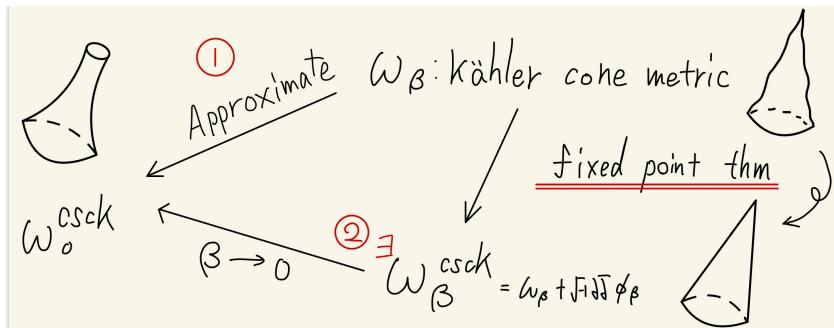 ①
Approximate
ω_β : kähler cone metric
fixed point thm
ω_0^{csck}
②
β → 0
∃ ω_β^{csck} = ω_β + √-1∂∂̄ φ_β